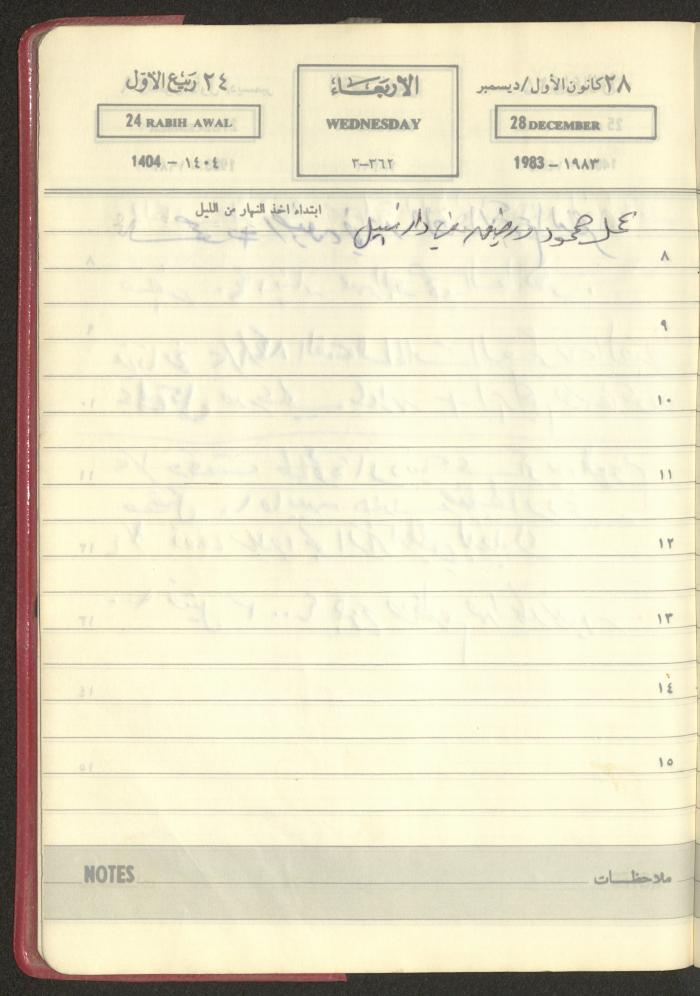 ٢٤ ربيع الأول
24 RABIH AWAL
1404 - ١٤٠٤
الأربعاء
WEDNESDAY
٣-٣٦٢
٢٨ كانون الأول/ديسمبر
28 DECEMBER
1983 - ١٩٨٣
ابتداء اخذ النهار من الليل
عمل محمود ورفيقه في دار نبيل
٨
٩
١٠
١١
١٢
١٣
١٤
١٥
NOTES
ملاحظات